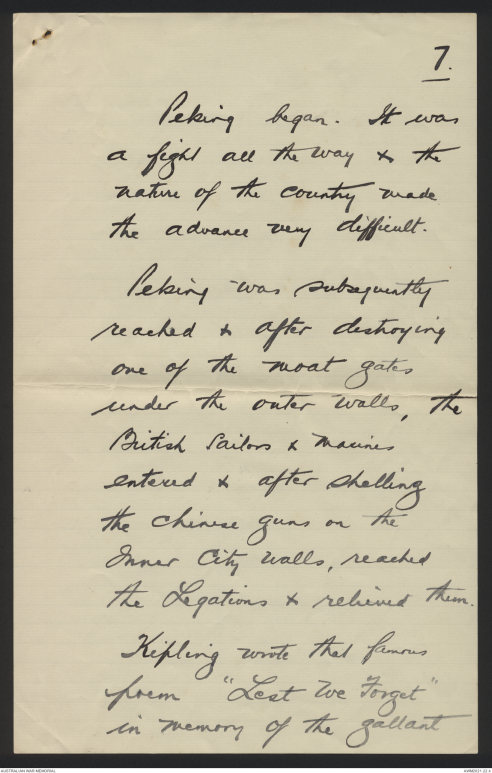 7.
Peking began. It was
a fight all the way & the
nature of the country made
the advance very difficult.
Peking was subsequently
reached & after destroying
one of the moat gates
under the outer walls, the
British Sailors & Marines
entered & after shelling
the chinese guns on the
Inner City walls, reached
the Legations & relieved them.
Kipling wrote that famous
poem "Lest We Forget"
in memory of the gallant
AUSTRALIAN WAR MEMORIAL